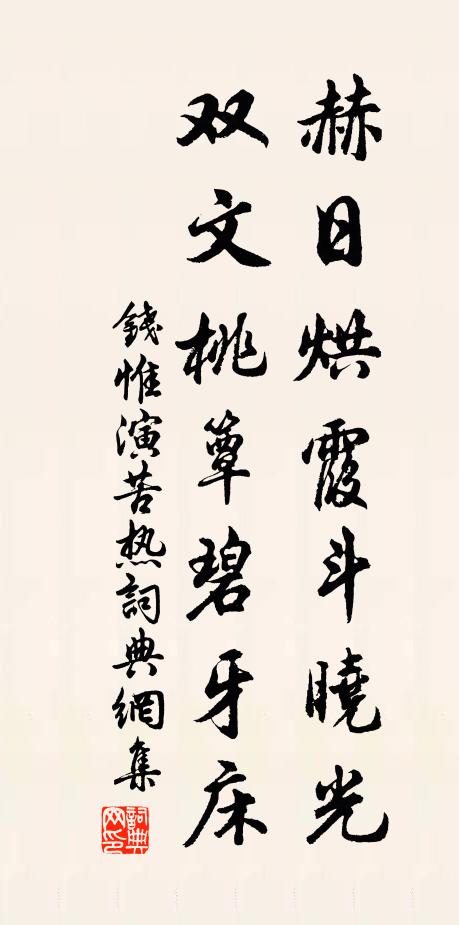 赫日烘霞斗曉光
双文桃簟碧牙床
錢惟演苦热詞典網集
詞典网印